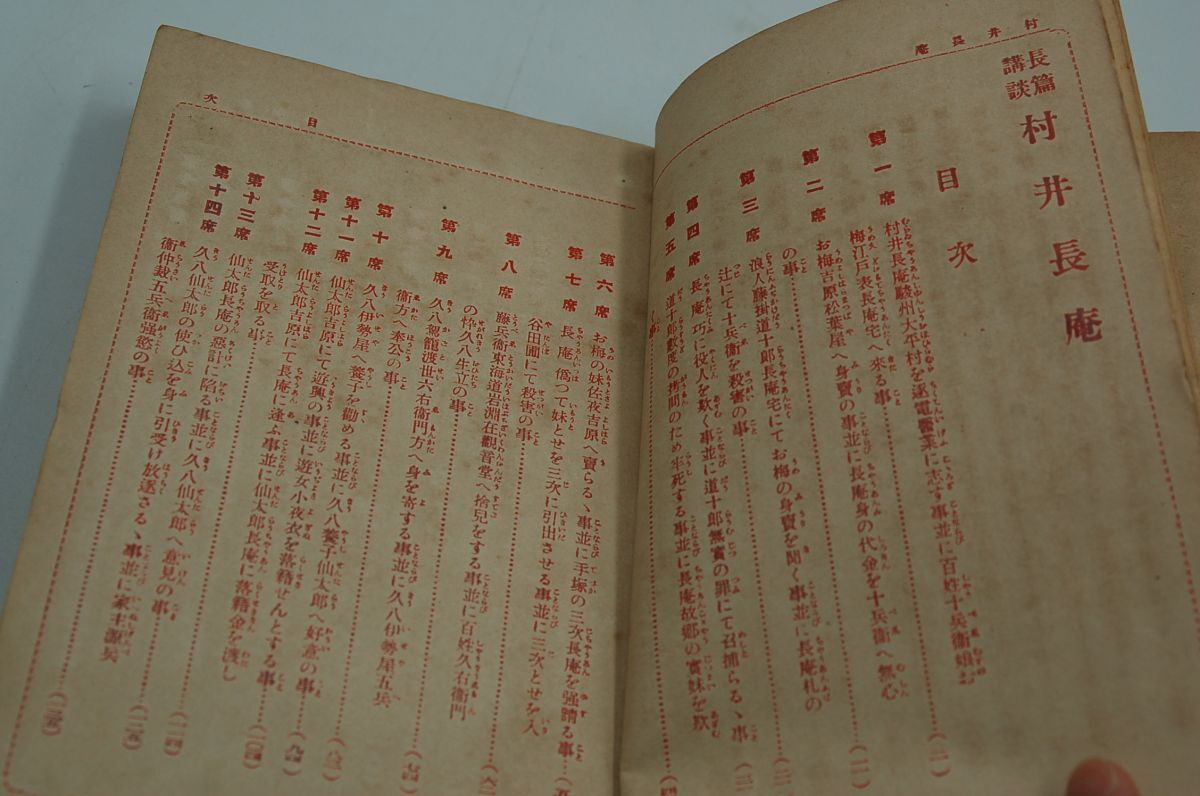 村井長庵
長篇講談 村井長庵
目次
第一席 村井長庵駿州大平村を逐電醫業に志す事並に百姓十兵衞娘お
梅江戸表長庵宅へ來る事
第二席 お梅吉原松葉屋へ身賣の事並に長庵身の代金を十兵衞へ無心
の事
第三席 浪人藤掛道十郎長庵宅にてお梅の身賣を聞く事並に長庵札の
辻にて十兵衞を殺害の事
第四席 長庵巧に役人を欺く事並に道十郎無實の罪にて召捕らるゝ事
第五席 道十郎數度の拷問のため牢死する事並に長庵故郷の實妹を欺
く事
目次
第六席 お梅の妹佐夜吉原へ賣らるゝ事並に手塚の三次長庵を強請る事
第七席 長庵僞つて妹とせを三次に引出させる事並に三次とせを入
谷田圃にて殺害の事
第八席 藤兵衞東海道岩淵在觀音堂へ捨兒をする事並に百姓久右衞門
の忰久八生立の事
第九席 久八駕籠渡世六右衞門方へ身を寄する事並に久八伊勢屋五兵
衞方へ奉公の事
第十席 久八伊勢屋へ養子を勸める事並に久八養子仙太郎へ好意の事
第十一席 仙太郎吉原にて遊興の事並に遊女小夜衣を落籍せんとする事
第十二席 仙太郎吉原にて長庵に逢ふ事並に仙太郎長庵に落籍金を渡し
受取を取る事
第十三席 仙太郎長庵の惡計に陷る事並に久八仙太郎へ意見の事
第十四席 久八仙太郎の使ひ込を身に引受け放逐さるゝ事並に家主源兵
衞仲裁五兵衞强慾の事